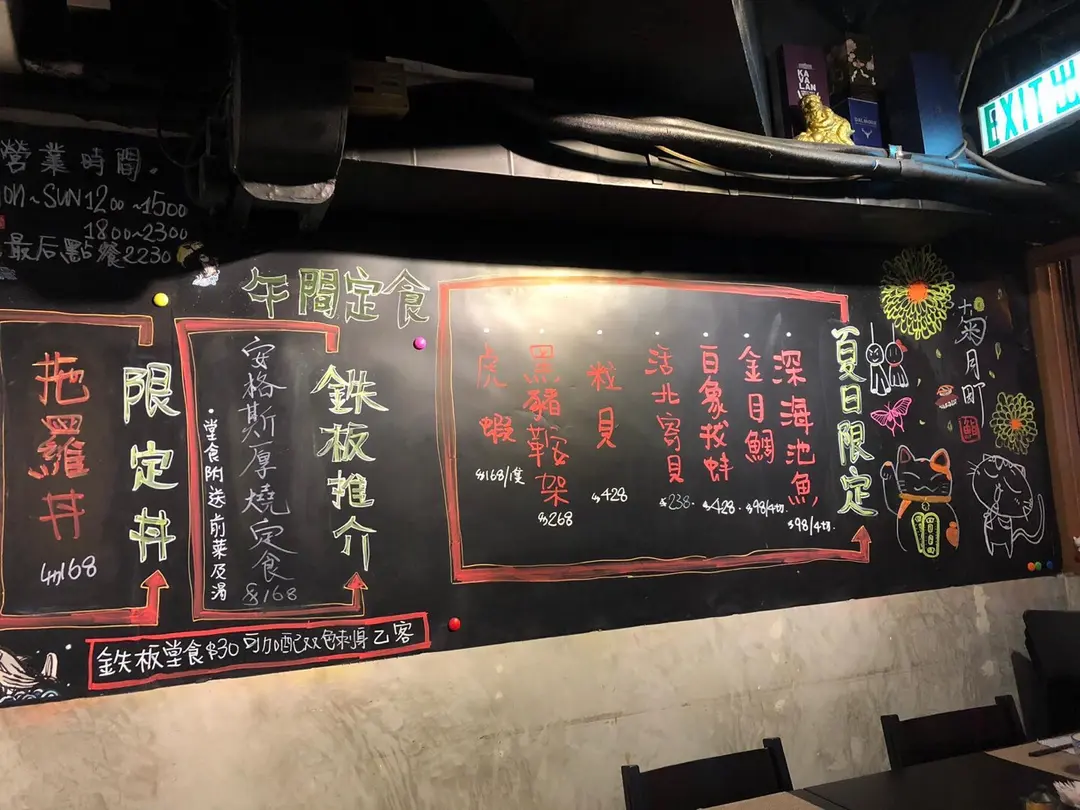 營業時間.
ON~SUN 1200~1500
1800~2300
最后點餐2230
午間定食
限定丼
拖羅丼
$168
鉄板推介
安格斯厚燒定食
$168
·堂食附送前菜及湯
鉄板堂食$30可加配双色刺身乙客
夏日限定
深海池魚
$98/4切.
金目鯛
$98/4切.
百象拔蚌
$428.
活北寄貝
$238.
粒貝
$428
黑豬鞍架
$268
虎蝦
$168/隻
菊月町
KAVALAN
EXIT 出